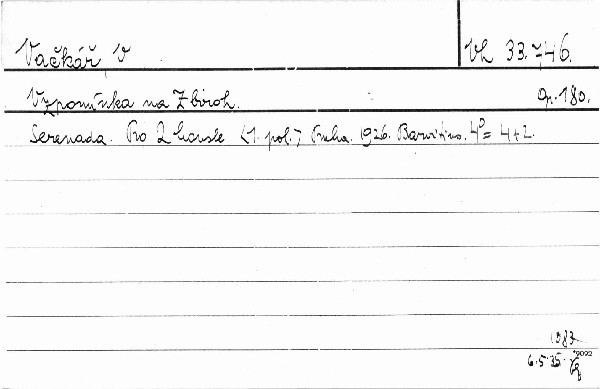 Vačkář V
Vh 33.746.
Vzpomínka na Zbiroh.
Op. 180.
Serenada. Pro 2 housle <1. pol.> Praha. 1926. Barvitius. 4° = 4+2.
1987
6.5.35.